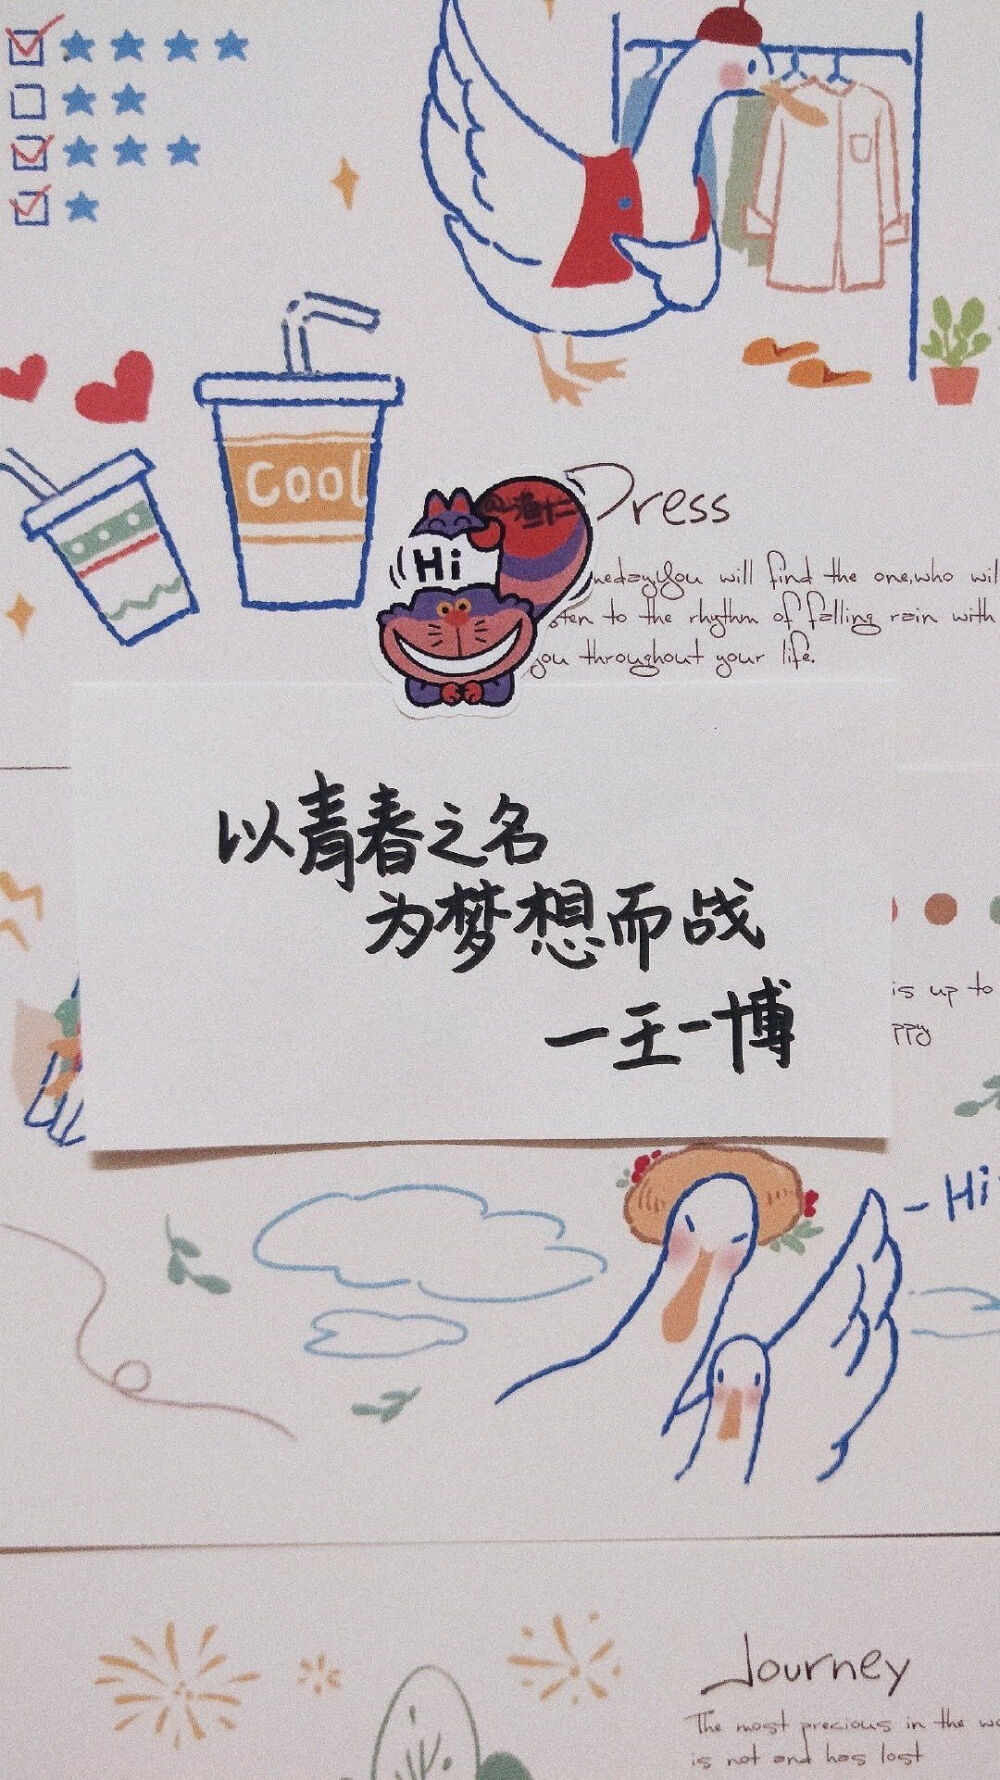 Cool
Hi
Dress
you will find the one,who wil
to the rhythm of falling rain with
you throughout your life.
以青春之名
为梦想而战
一王一博
is up to
ppy
-Hi
Journey
The most precious in the wo
is not and has lost